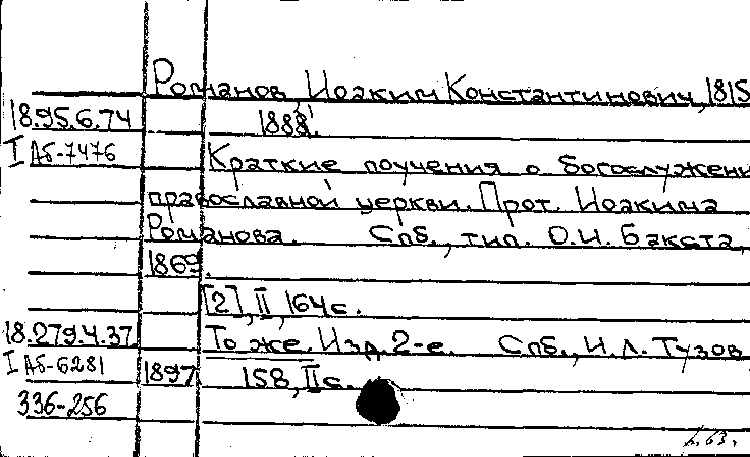 Романов, Иоаким Константинович, 1815
18.95.6.74 1888.
I Аб-7476 Краткие поучения о богослужени
православной церкви. Прот. Иоакима
Романова. Спб., тип. О.И. Бакста,
1869.
[2], II, 164 с.
18.279.4.37. То же. Изд. 2-е. Спб., И.Л. Тузов
I Аб-6281 1897 158, II с.
336-256